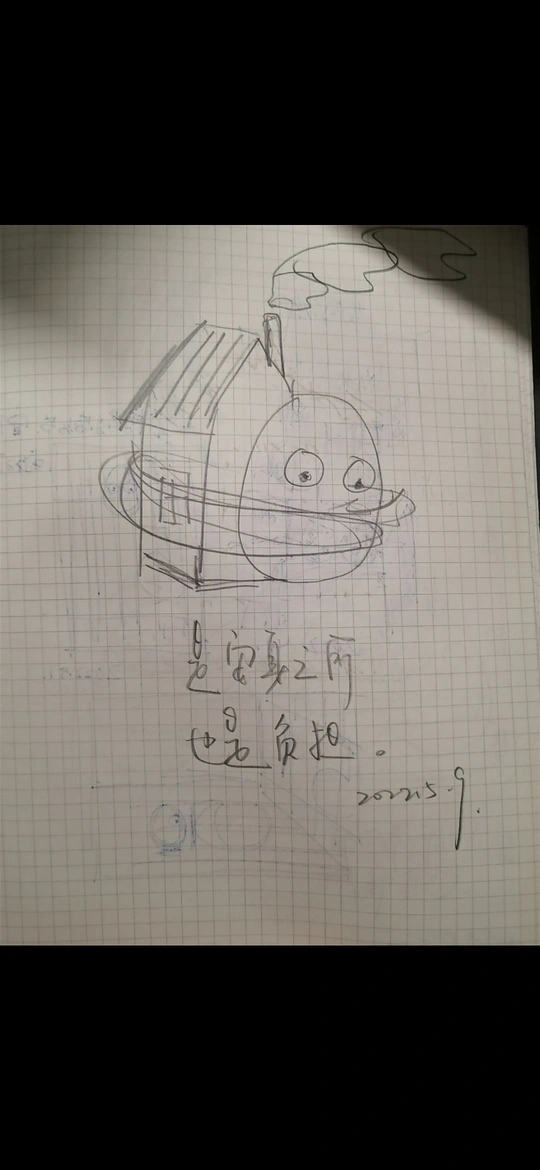 是安身之所
也是负担。
2022.5.9.